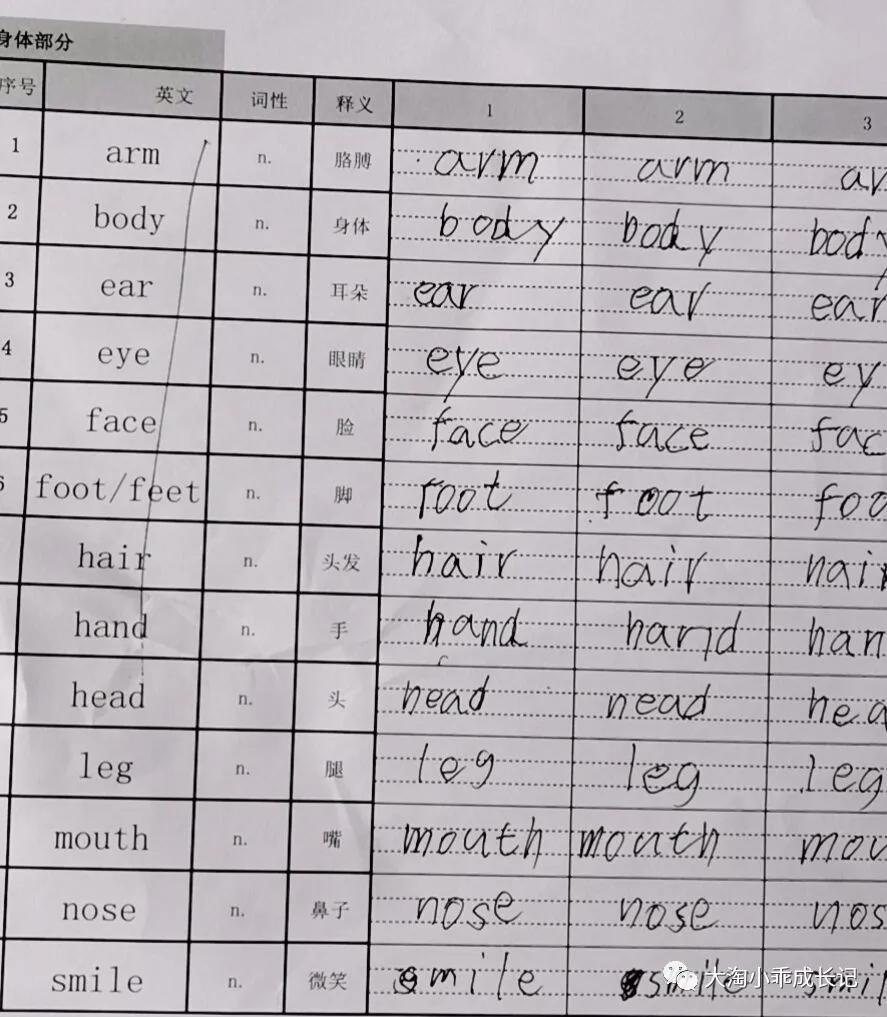 身体部分
序号 英文 词性 释义 1 2 3
1 arm n. 胳膊 arm arm ar
2 body n. 身体 body body body
3 ear n. 耳朵 ear ear ear
4 eye n. 眼睛 eye eye ey
5 face n. 脸 face face fac
foot/feet n. 脚 foot foot foo
hair n. 头发 hair hair hair
hand n. 手 hand hand han
head n. 头 head head hea
leg n. 腿 leg leg leg
mouth n. 嘴 mouth mouth mou
nose n. 鼻子 nose nose nos
smile n. 微笑 smile smile smil
大淘小乖成长记